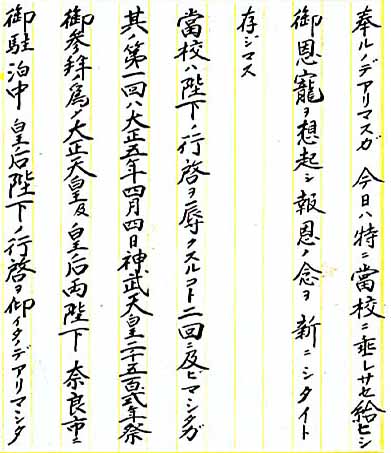 奉ルノデアリマスガ 今日ハ特ニ當校ニ垂レサセ給ヒシ
御恩寵ヲ想起シ報恩ノ念ヲ 新ニシタイト
存ジマス
當校ハ陛下ノ行啓ヲ辱クスルコト二回ニ及ビマシタガ
其ノ第一回ハ大正五年四月四日神武天皇二千五百弐年祭
御参拜ノ為メ大正天皇及皇后両陛下 奈良市ニ
御駐泊中 皇后陛下ノ行啓ヲ仰イタノデアリマシタ